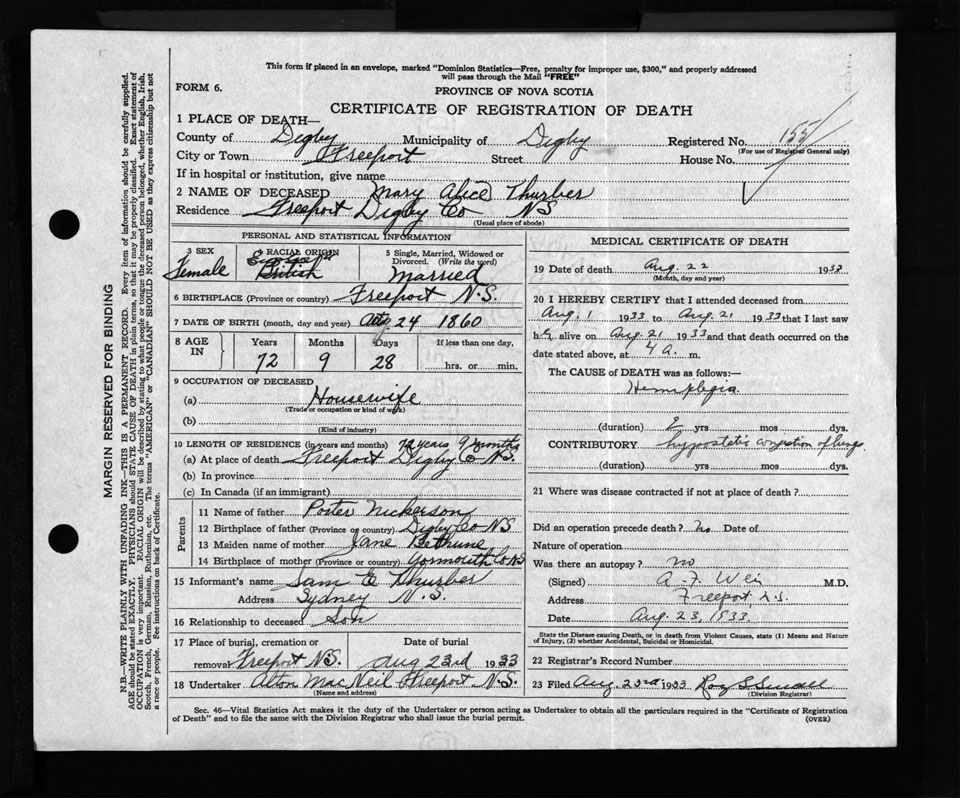 This form if placed in an envelope, marked "Dominion Statistics—Free, penalty for improper use, $300," and properly addressed
will pass through the Mail "FREE"
FORM 6.
PROVINCE OF NOVA SCOTIA
CERTIFICATE OF REGISTRATION OF DEATH
1 PLACE OF DEATH—
County of Digby Municipality of Digby Registered No. 155
(For use of Registrar General only)
City or Town Freeport Street House No.
If in hospital or institution, give name
2 NAME OF DECEASED Mary Alice Thurber
Residence Freeport Digby Co NS
(Usual place of abode)
PERSONAL AND STATISTICAL INFORMATION
3 SEX Female
4 RACIAL ORIGIN British
5 Single, Married, Widowed or Divorced. (Write the word) Married
6 BIRTHPLACE (Province or country) Freeport N.S.
7 DATE OF BIRTH (month, day and year) 24 1860
8 AGE IN Years 72 Months 9 Days 28 If less than one day, hrs. or min.
9 OCCUPATION OF DECEASED
(a) Housewife
(Trade or occupation or kind of work)
(b)
(Kind of industry)
10 LENGTH OF RESIDENCE (in years and months) 72 years 9 months
(a) At place of death Freeport Digby Co N.S.
(b) In province
(c) In Canada (if an immigrant)
Parents
11 Name of father Porter Nickerson
12 Birthplace of father (Province or country) Digby Co NS
13 Maiden name of mother Jane Bethune
14 Birthplace of mother (Province or country) Yormouth Co NS
15 Informant's name Sam E Thurber
Address Sydney N.S.
16 Relationship to deceased Son
17 Place of burial, cremation or removal Freeport N.S. Date of burial Aug 23rd 1933
18 Undertaker Alton MacNeil Freeport N.S.
(Name and address)
MEDICAL CERTIFICATE OF DEATH
19 Date of death Aug 22 1933
(Month, day and year)
20 I HEREBY CERTIFY that I attended deceased from
Aug. 1 1933 to Aug. 21 1933 that I last saw
h alive on Aug. 21 1933 and that death occurred on the
date stated above, at 4 a. m.
The CAUSE of DEATH was as follows:—
Hemplegia
(duration) 2 yrs mos dys.
CONTRIBUTORY hypostatic congestion of lungs
(duration) yrs mos dys.
21 Where was disease contracted if not at place of death?
Did an operation precede death? no Date of
Nature of operation
Was there an autopsy? no
(Signed) A. F. Weir M.D.
Address Freeport N.S.
Date Aug. 23, 1933
State the Disease causing Death, or in death from Violent Causes, state (1) Means and Nature
of Injury, (2) whether Accidental, Suicidal or Homicidal.
22 Registrar's Record Number
23 Filed Aug. 23rd 1933 Roy S Small
(Division Registrar)
Sec. 46—Vital Statistics Act makes it the duty of the Undertaker or person acting as Undertaker to obtain all the particulars required in the "Certificate of Registration
of Death" and to file the same with the Division Registrar who shall issue the burial permit.
(OVER)
MARGIN RESERVED FOR BINDING
N.B.—WRITE PLAINLY WITH UNFADING INK—THIS IS A PERMANENT RECORD. Every item of information should be carefully supplied.
AGE should be stated EXACTLY. PHYSICIANS should STATE CAUSE OF DEATH in plain terms, so that it may be properly classified. Exact statement of
OCCUPATION is very important. RACIAL ORIGIN will be described by stating to what people or tongue the deceased person belonged, whether English, Irish,
Scotch, French, German, Russian, Ruthenian, etc. The terms "AMERICAN" or "CANADIAN" SHOULD NOT BE USED as they express citizenship but not
a race or people. See instructions on back of Certificate.